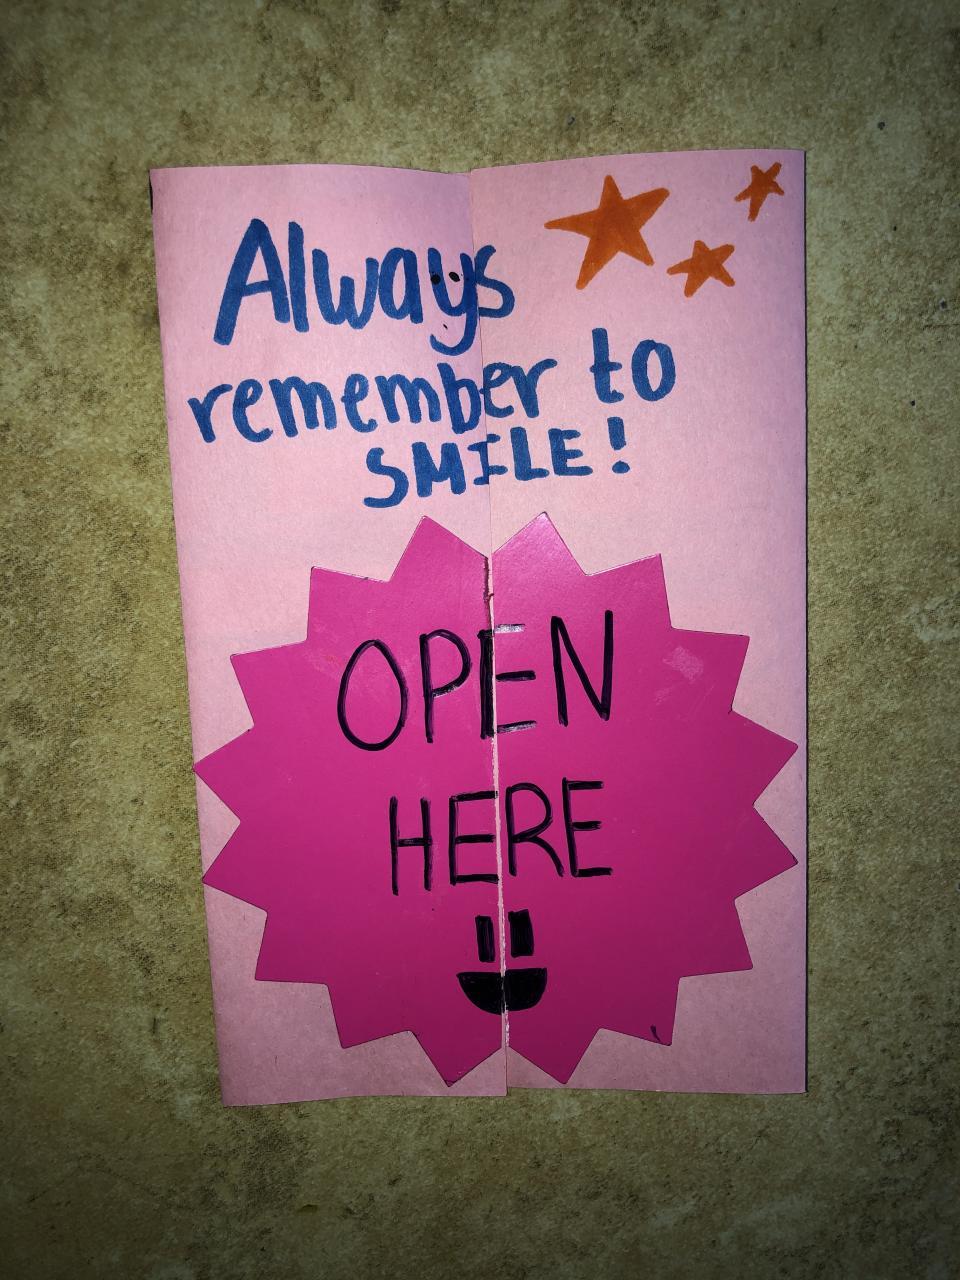 Always
remember to
SMILE!
OPEN
HERE